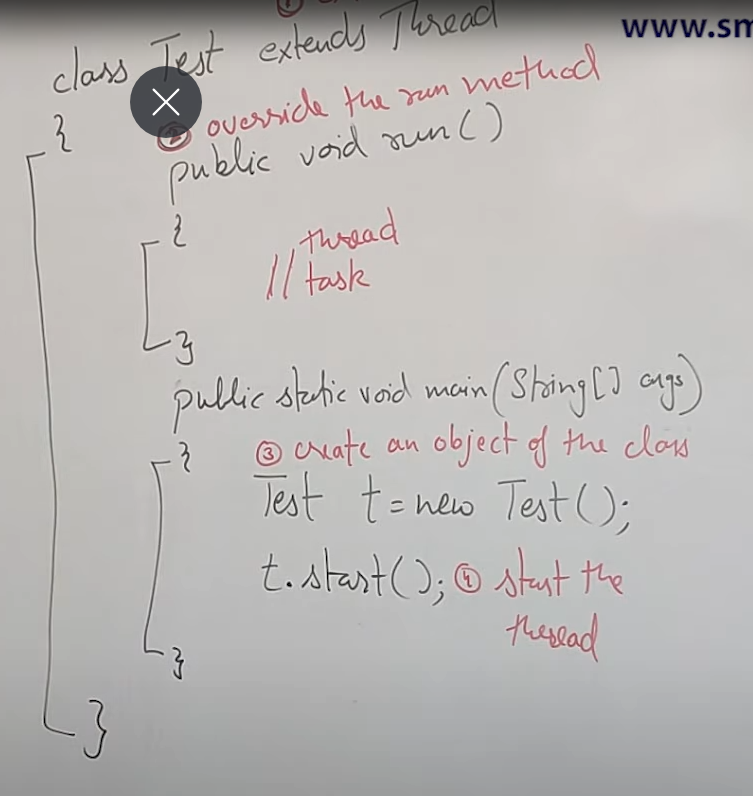 ①
www.sm
class Test extends Thread
{
② override the run method
public void run()
{
// thread
task
}
public static void main(String[] args)
{
③ create an object of the class
Test t = new Test();
t.start(); ④ start the
thread
}
}